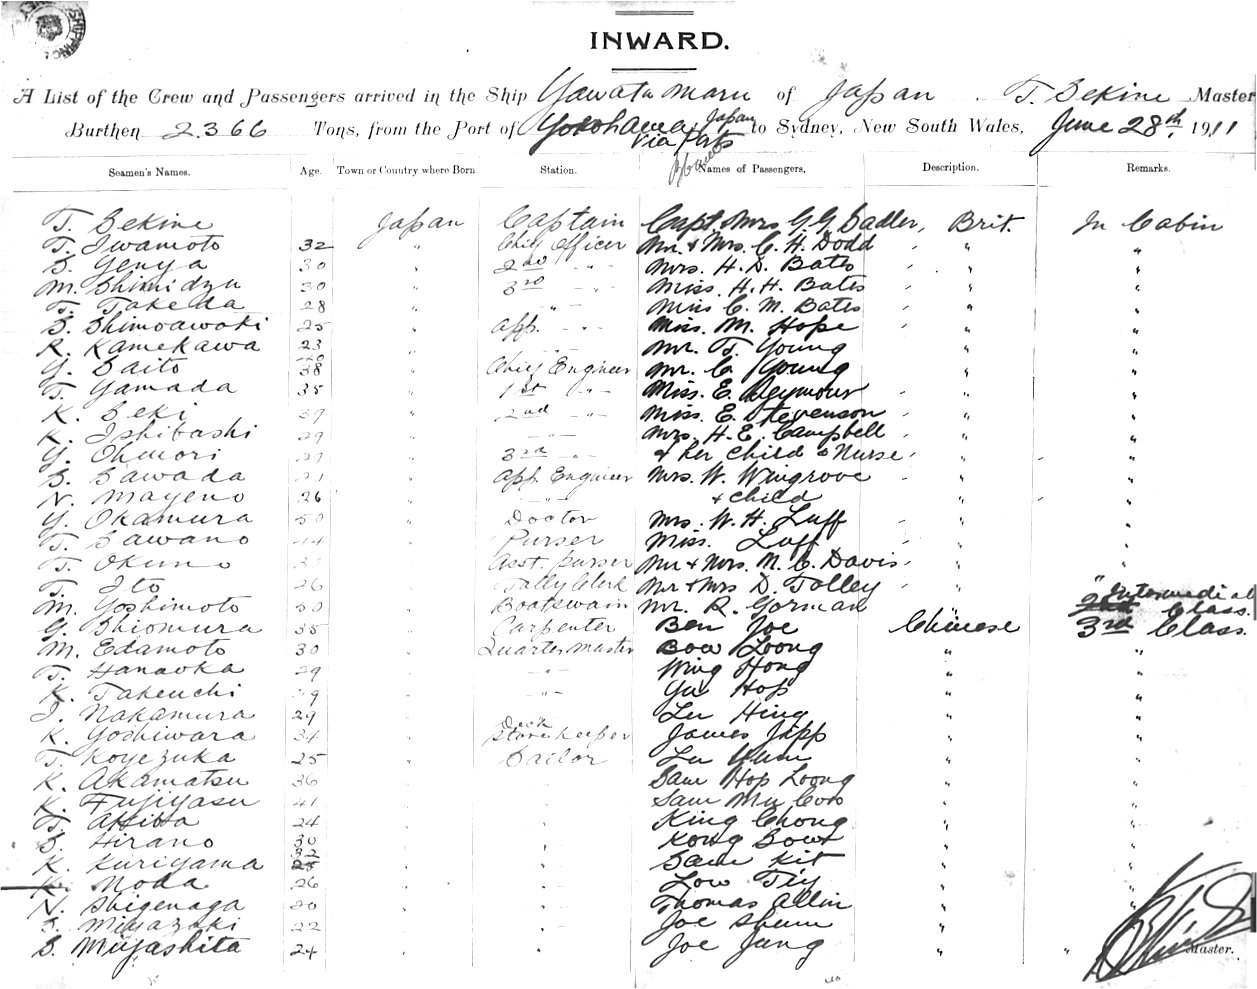 SHIPPING
INWARD.
A List of the Crew and Passengers arrived in the Ship Yawata Maru of Japan. T. Sekine Master
Burthen 2366 Tons, from the Port of Yokohama Japan via Ports to Sydney, New South Wales, June 28th, 1911
Seamen's Names. Age. Town or Country where Born. Station. Names of Passengers. Description. Remarks.
T. Sekine Japan Captain Capt. Mrs G. G. Sadler, Brit. In Cabin
T. Iwamoto 32 " Chief Officer Mr. & Mrs. C. H. Dodd " "
S. Yenya 30 " 2nd " Mrs. H. D. Bates " "
M. Shimidzu 30 " 3rd " Miss. H. H. Bates " "
T. Takeda 28 " " Miss C. M. Bates " "
S. Shimoawoki 25 " app. " Miss. M. Hope " "
R. Kamekawa 23 " Mr. T. Young " "
Y. Saito 38 " Chief Engineer Mr. C. Young " "
T. Yamada 35 " 1st " Miss. E. Seymour " "
K. Seki 39 " 2nd " Miss. E. Stevenson " "
K. Ishibashi 29 " " Mrs. H. E. Campbell " "
Y. Ohmori 27 " 3rd " & her Child & Nurse " "
S. Sawada 21 " app. Engineer Mrs. W. Wingrove " "
N. Mayeno 26 " " & Child " "
Y. Okamura 50 " Doctor Mrs. W. H. Luff " "
T. Sawano 44 " Purser Miss. Luff " "
T. Okuno " Asst. Purser Mr & Mrs. M. C. Davis " "
T. Ito 26 " Tally Clerk Mr & Mrs D. Tolley " "
M. Yoshimoto 30 " Boatswain Mr. R. Gorman " Intermediate Class.
G. Shiomura 35 " Carpenter Ben Joe Chinese 3rd Class.
M. Edamoto 30 " Quarter Master Bow Loong " "
T. Hanaoka 29 " " Wing Hong " "
K. Takeuchi 39 " " Yu Hop " "
I. Nakamura 29 " Lu Hing " "
K. Yoshiwara 34 " Deck Store Keeper James Jipp " "
T. Koyezuka 25 " Sailor Lu " "
K. Akamatsu 36 " " Sam Hop Loong " "
K. Fujiyasu 41 " " Sam Mu " "
T. 24 " " King Chong " "
S. Hirano 30 " " Kong Bow " "
K. Kuriyama 32 " " Sam Kit " "
K. Noda 26 " " Low Tiy " "
N. Shigenaga 20 " " Thomas Allin " "
S. Miyazaki 22 " " Joe Shum " "
S. Miyashita 24 " " Joe Jung " "
Master.